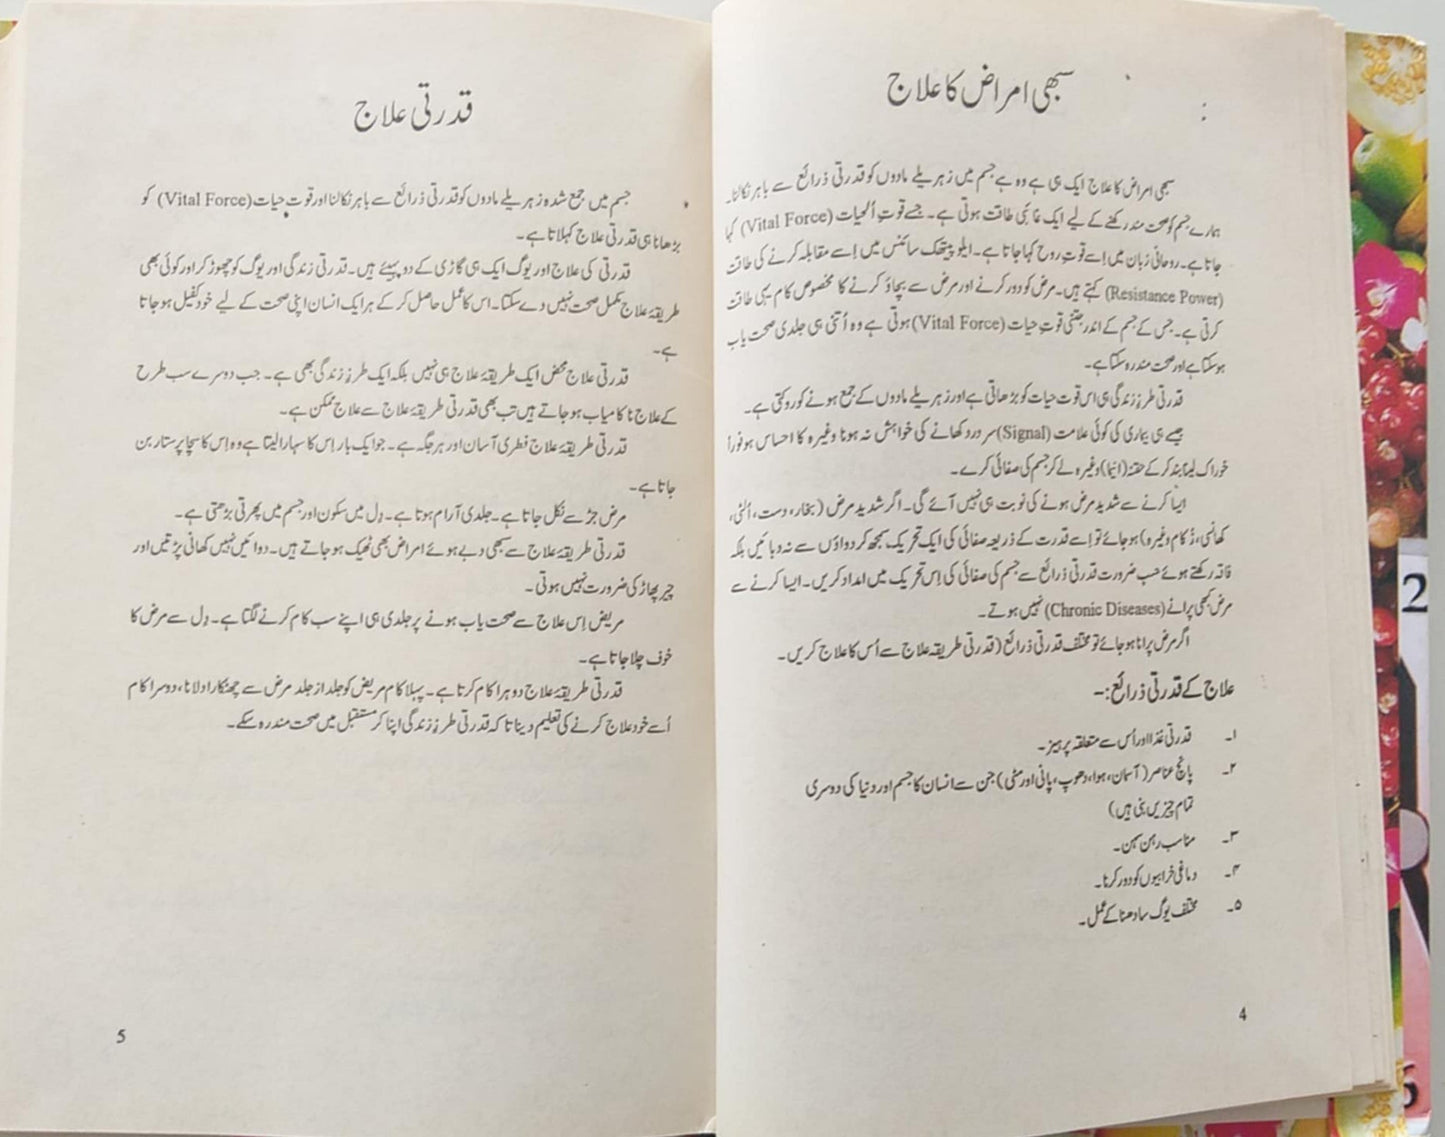 سبھی امراض کا علاج
سبھی امراض کا علاج ایک ہی ہے وہ ہے جسم میں زہریلے مادوں کو قدرتی ذرائع سے باہر نکالنا۔
ہمارے جسم کو صحت مند رکھنے کے لیے ایک غائبی طاقت ہوتی ہے۔ جسے قوتِ الحیات (Vital Force) کہا
جاتا ہے۔ روحانی زبان میں اِسے قوتِ روح کہا جاتا ہے۔ ایلوپیتھک سائنس میں اِسے مقابلہ کرنے کی طاقت
(Resistance Power) کہتے ہیں۔ مرض کو دور کرنے اور مرض سے بچاؤ کرنے کا مخصوص کام یہی طاقت
کرتی ہے۔ جس کے جسم کے اندر جتنی قوتِ حیات (Vital Force) ہوتی ہے وہ اُتنی ہی جلدی صحت یاب
ہوسکتا ہے اور صحت مند رہ سکتا ہے۔
قدرتی طرزِ زندگی ہی اس قوت حیات کو بڑھاتی ہے اور زہریلے مادوں کے جمع ہونے کو روکتی ہے۔
جیسے ہی بیماری کی کوئی علامت (Signal) سر درد کھانے کی خواہش نہ ہونا وغیرہ کا احساس ہو فوراً
خوراک لینا بند کرکے حقنہ (انیما) وغیرہ لے کر جسم کی صفائی کرے۔
ایسا کرنے سے شدید مرض ہونے کی نوبت ہی نہیں آئے گی۔ اگر شدید مرض (بخار، دست، اُلٹی،
کھانسی، زُکام وغیرہ) ہو جائے تو اِسے قدرت کے ذریعہ صفائی کی ایک تحریک سمجھ کر دواؤں سے نہ دبائیں بلکہ
فاتہ رکھتے ہوئے حسب ضرورت قدرتی ذرائع سے جسم کی صفائی کی اِس تحریک میں امداد کریں۔ ایسا کرنے سے
مرض کبھی پرانے (Chronic Diseases) نہیں ہوتے۔
اگر مرض پرانا ہو جائے تو مختلف قدرتی ذرائع (قدرتی طریقہ علاج سے اُس کا علاج کریں۔
علاج کے قدرتی ذرائع:-
۱۔ قدرتی غذا اور اُس سے متعلقہ پرہیز۔
۲۔ پانچ عناصر (آسمان، ہوا، دھوپ، پانی اور مٹی) جن سے انسان کا جسم اور دنیا کی دوسری
تمام چیزیں بنی ہیں)
۳۔ مناسب رہن سہن۔
۴۔ دماغی خرابیوں کو دور کرنا۔
۵۔ مختلف یوگ سادھنا کے عمل۔
4
قدرتی علاج
جسم میں جمع شدہ زہریلے مادوں کو قدرتی ذرائع سے باہر نکالنا اور قوتِ حیات (Vital Force) کو
بڑھانا ہی قدرتی علاج کہلاتا ہے۔
قدرتی کی علاج اور یوگ ایک ہی گاڑی کے دو پہیئے ہیں۔ قدرتی زندگی اور یوگ کو چھوڑ کر اور کوئی بھی
طریقۂ علاج مکمل صحت نہیں دے سکتا۔ اس کا عمل حاصل کرکے ہر ایک انسان اپنی صحت کے لیے خود کفیل ہو جاتا
ہے۔
قدرتی علاج محض ایک طریقۂ علاج ہی نہیں بلکہ ایک طرزِ زندگی بھی ہے۔ جب دوسرے سب طرح
کے علاج ناکامیاب ہو جاتے ہیں تب بھی قدرتی طریقۂ علاج سے علاج ممکن ہے۔
قدرتی طریقۂ علاج فطری آسان اور ہر جگہ ہے۔ جو ایک بار اِس کا سہارا لیتا ہے وہ اِس کا سچا پرستار بن
جاتا ہے۔
مرض جڑ سے نکل جاتا ہے۔ جلدی آرام ہوتا ہے۔ دِل میں سکون اور جسم میں پھرتی بڑھتی ہے۔
قدرتی طریقۂ علاج سے سبھی دبے ہوئے امراض بھی ٹھیک ہو جاتے ہیں۔ دوائیں نہیں کھانی پڑتیں اور
چیر پھاڑ کی ضرورت نہیں ہوتی۔
مریض اِس علاج سے صحت یاب ہونے پر جلدی ہی اپنے سب کام کرنے لگتا ہے۔ دِل سے مرض کا
خوف چلا جاتا ہے۔
قدرتی طریقۂ علاج دوہرا کام کرتا ہے۔ پہلا کام مریض کو جلد از جلد مرض سے چھٹکارا دلانا، دوسرا کام
اُسے خود علاج کرنے کی تعلیم دینا تاکہ قدرتی طرزِ زندگی اپنا کر مستقبل میں صحت مند رہ سکے۔
5
2